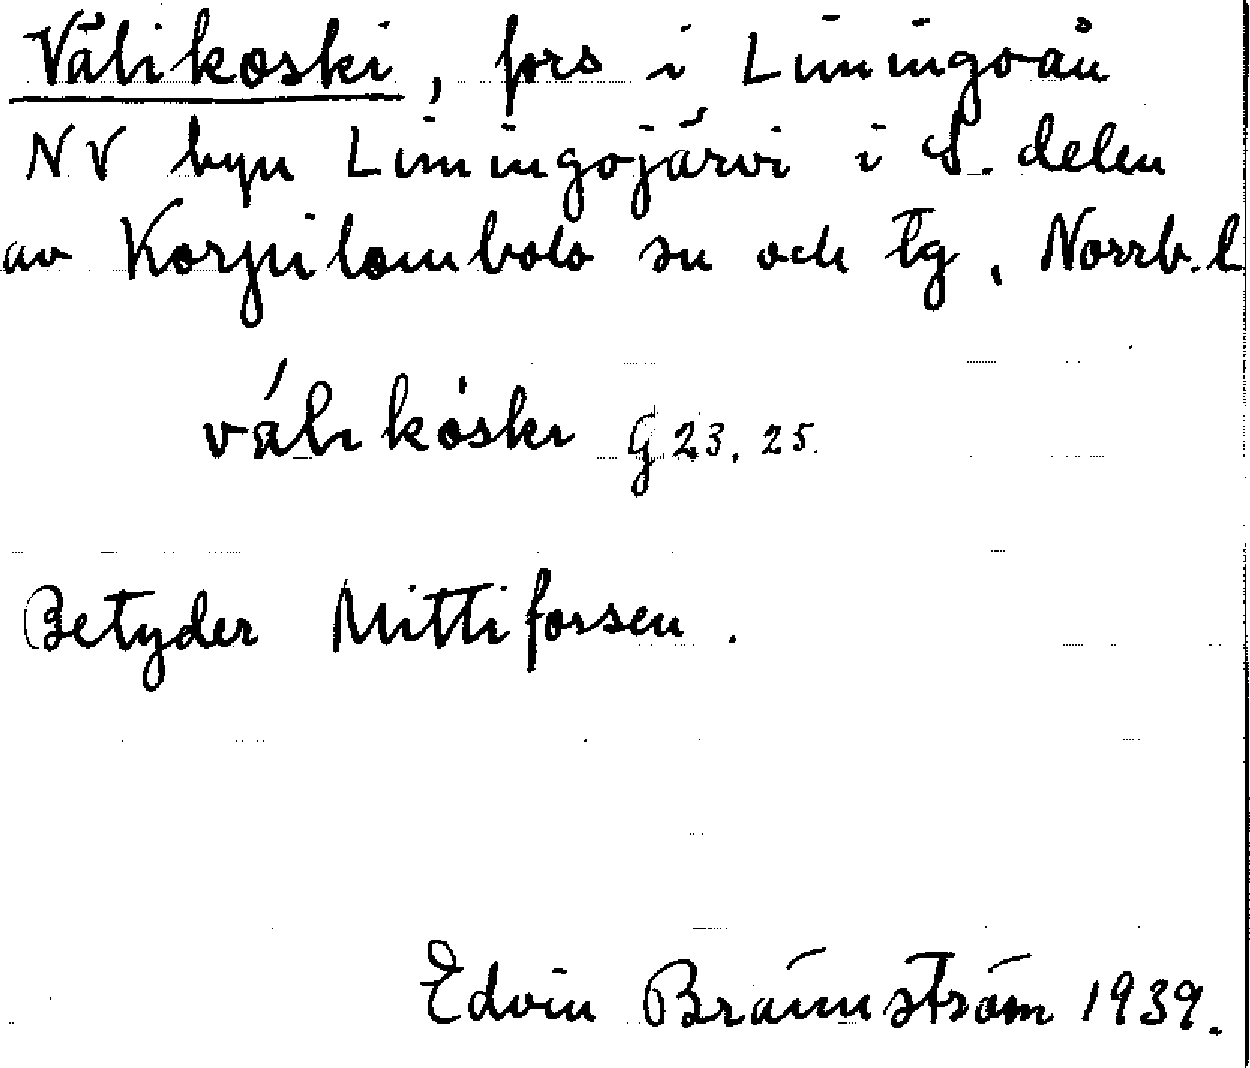 Välikoski, fors i Liminigoån
NV byn Liminigojärvi i S. delen
av Korpilombolo sn och tg, Norrb. l
väli koski G 23, 25.
Betyder Mittiforsen.
Edvin Brännström 1939.